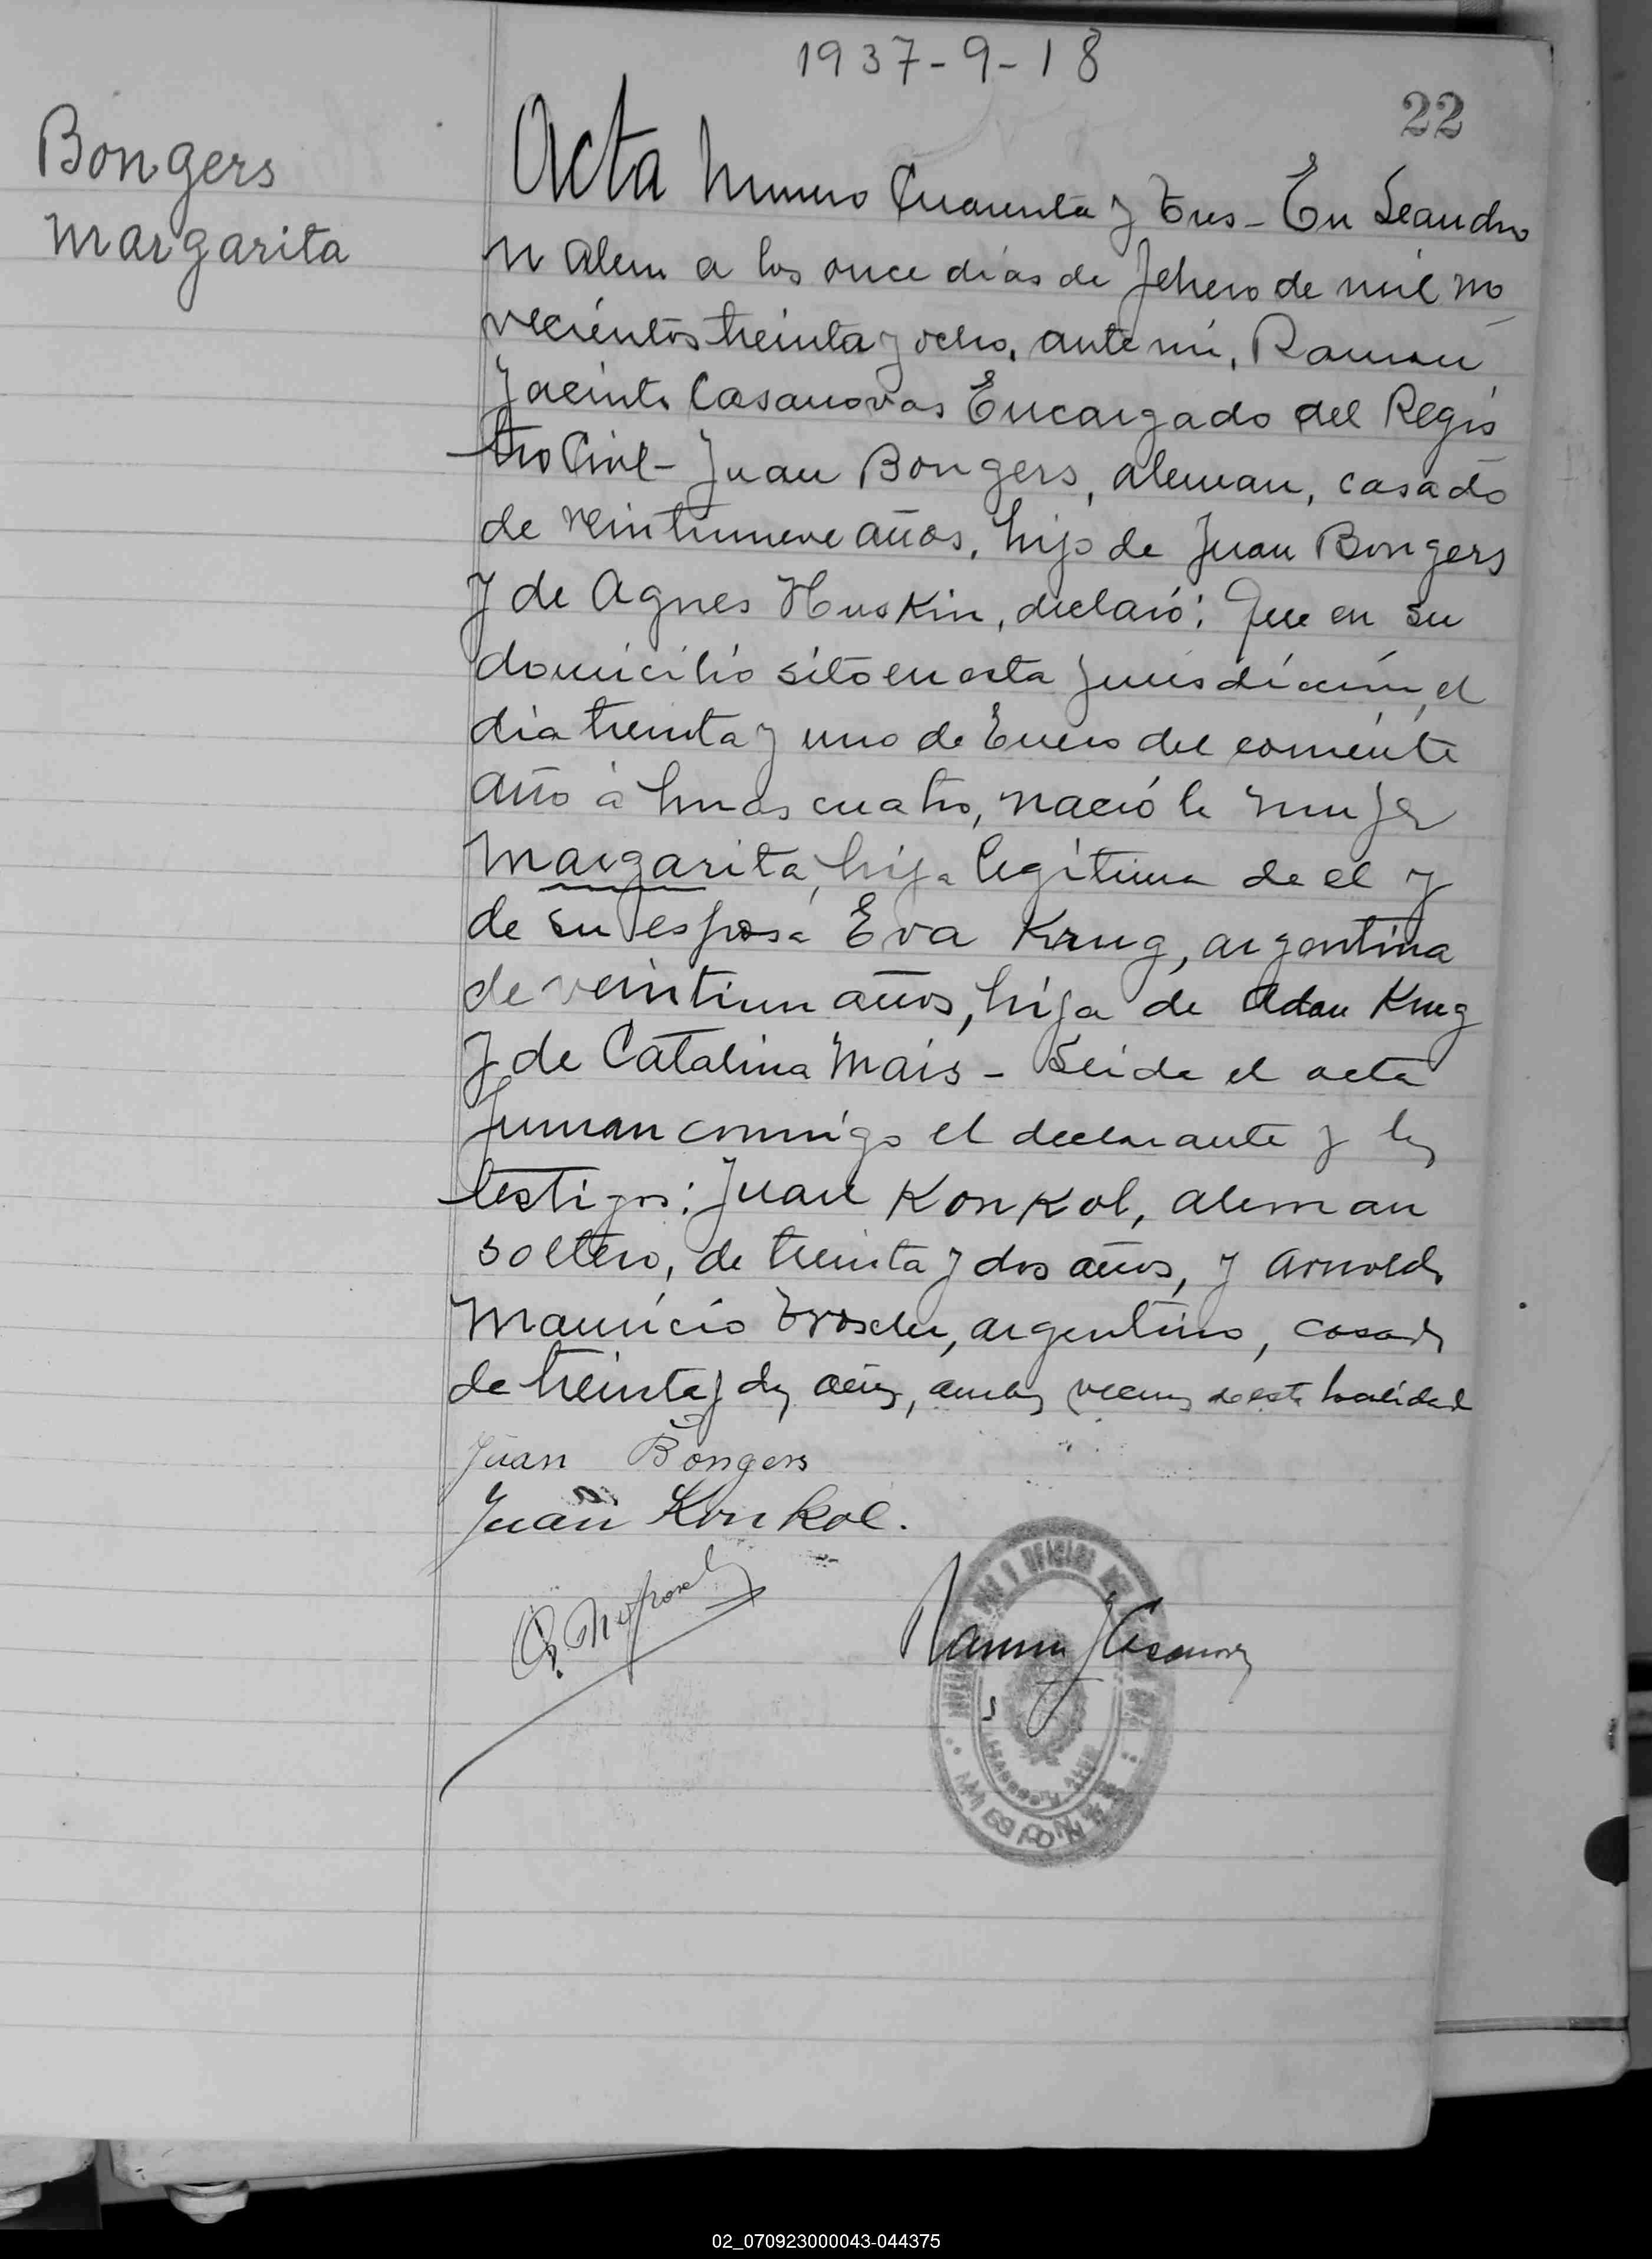 1937-9-18
22
Bongers
Margarita
Acta Numero Cuarenta y Tres - En Leandro
N Alem a los once dias de Febrero de mil no
vecientos treinta y ocho, ante mi, Ramón
Jacinto Casanovas Encargado del Regis
tro Civil - Juan Bongers, aleman, casado
de veintinueve años, hijo de Juan Bongers
y de Agnes Huskin, declaró: Que en su
domicilio sito en esta jurisdicción, el
dia treinta y uno de Enero del corriente
año á horas cuatro, nació la mujer
Margarita, hija legitima de el y
de su esposa Eva Krug, argentina
de veintiun años, hija de Adan Krug
y de Catalina Mais - Leida el acta
firman conmigo el declarante y los
testigos: Juan Konkol, aleman
soltero, de treinta y dos años, y Arnoldo
Mauricio argentino, casado
de treinta y dos años, ambos vecinos de esta localidad
Juan Bongers
Juan Konkol.
Ramon J Casanovas
MISIONES